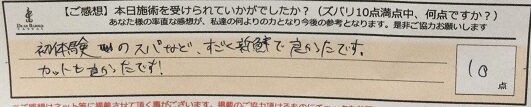 【ご感想】本日施術を受けられていかがでしたか？（ズバリ10点満点中、何点ですか？）
あなた様の率直な感想が、私達の何よりの力となり今後の参考となります。是非ご協力お願いします
初体験 のスパなど、すごく新鮮で良かったです。
カットも良かったです！
10点